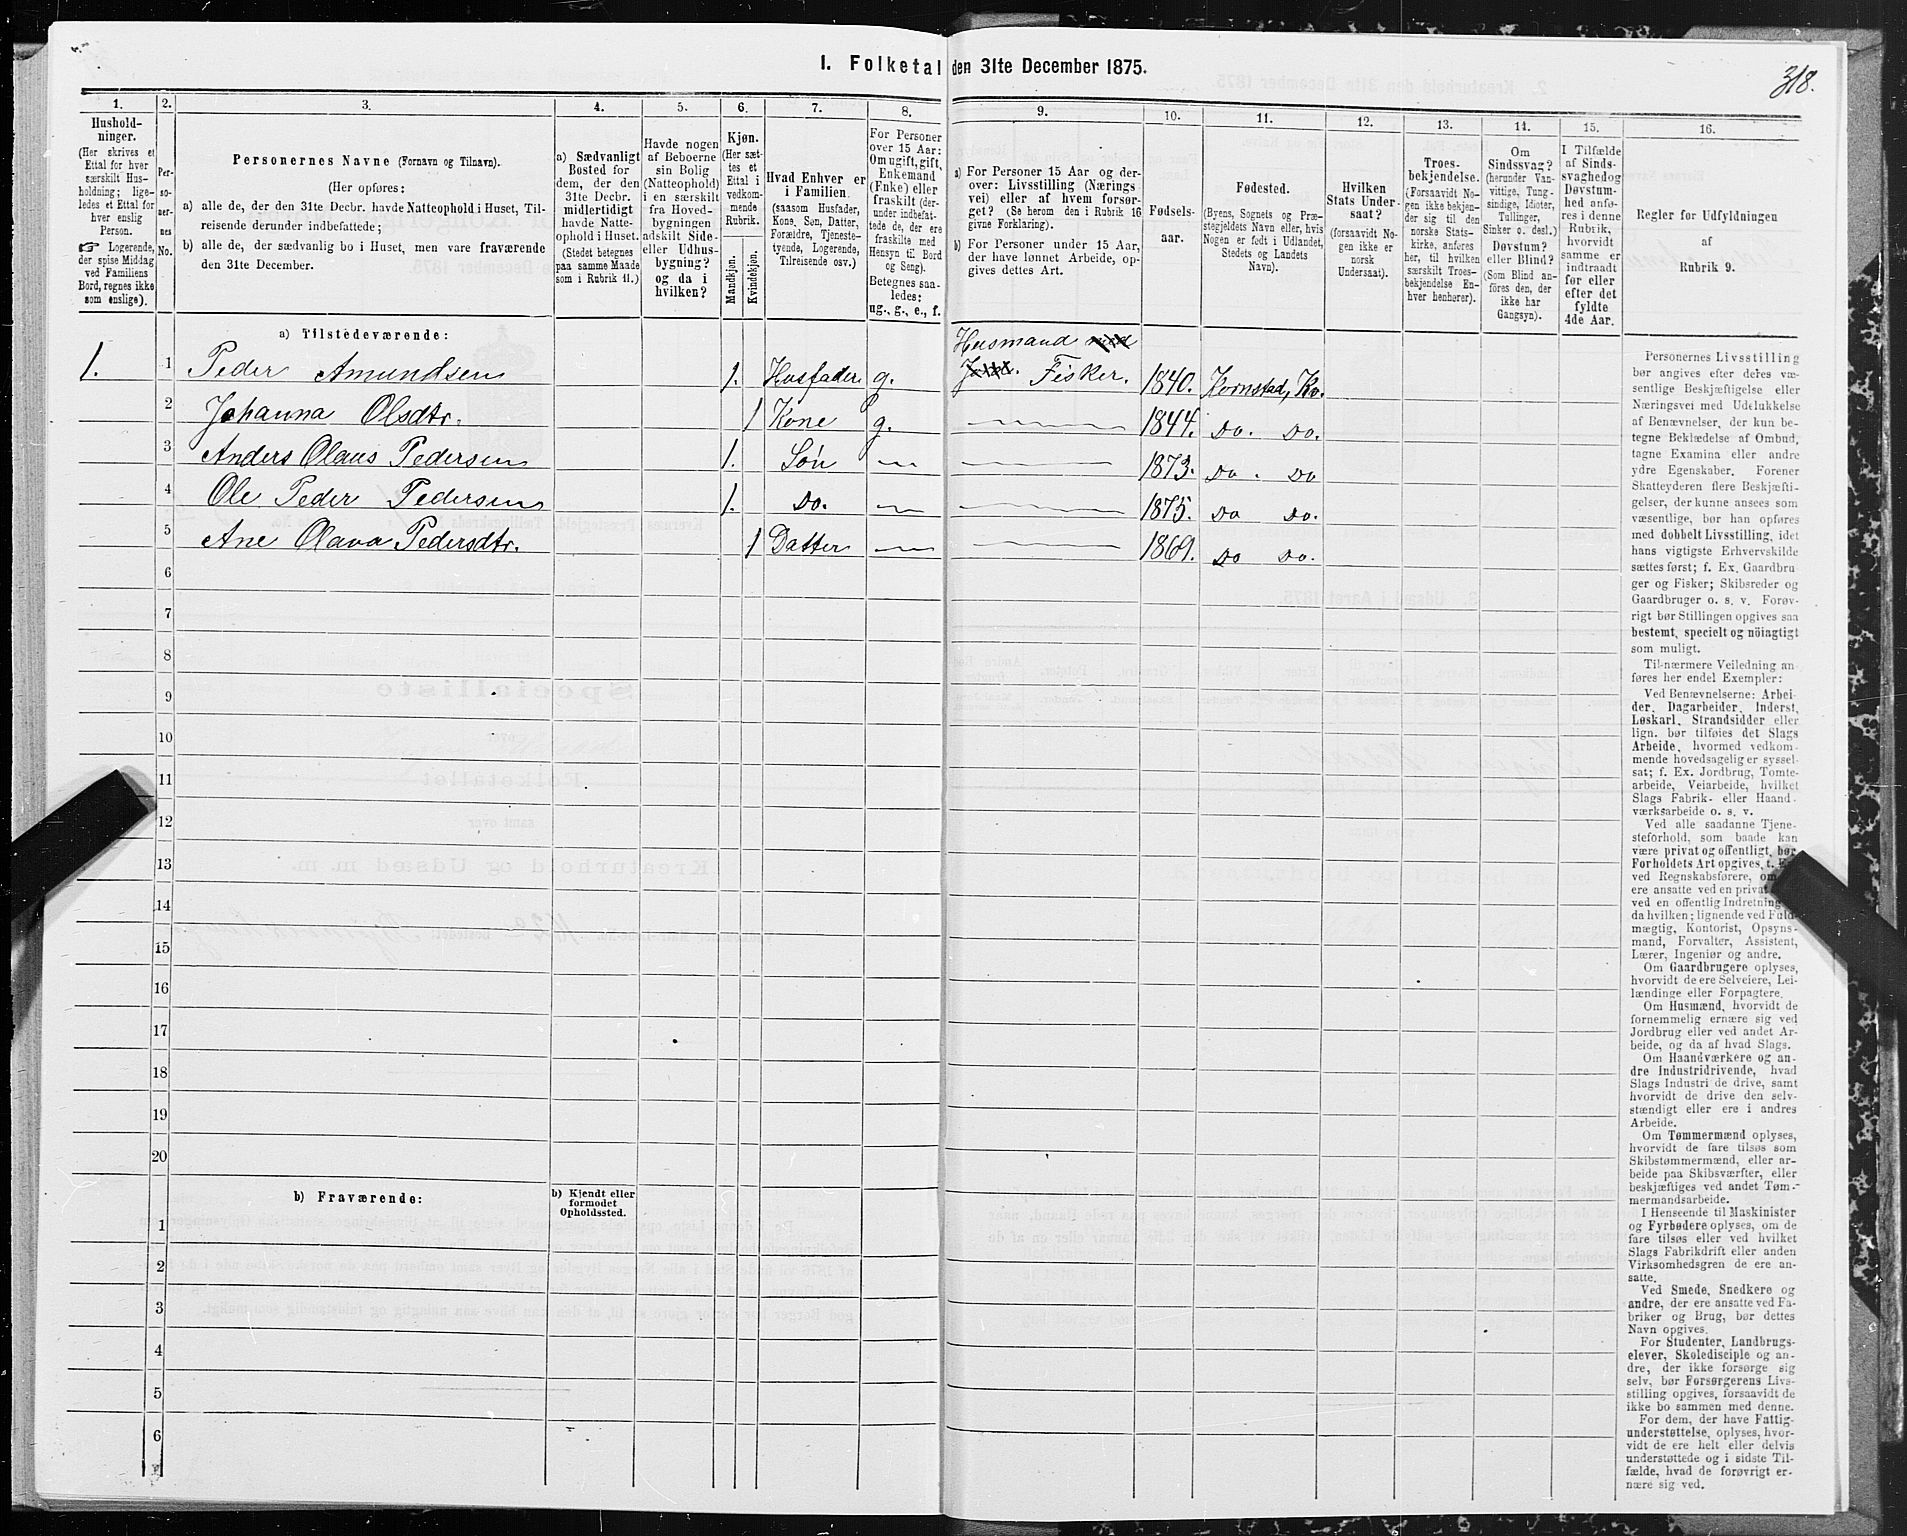 1. Folketal den 31te December 1875.
318.
1. 2. 3. 4. 5. 6. 7. 8. 9. 10. 11. 12. 13. 14. 15. 16.
Hushold-
ninger.
(Her skrives et
Ettal for hver
særskilt Hus-
holdning; lige-
ledes et Ettal for
hver enslig
Person.
☞ Logerende,
der spise Middag
ved Familiens
Bord, regnes ikke
som enslige).
Per-
so-
ner-
nes
No.
Personernes Navne (Fornavn og Tilnavn).
(Her opføres:
a) alle de, der den 31te Decbr. havde Natteophold i Huset, Til-
reisende derunder indbefattede;
b) alle de, der sædvanlig bo i Huset, men vare fraværende
den 31te December.
a) Sædvanligt
Bosted for
dem, der den
31te Decbr.
midlertidigt
havde Natte-
ophold i Huset.
(Stedet betegnes
paa samme Maade
som i Rubrik 11.)
Havde nogen
af Beboerne
sin Bolig
(Natteophold)
i en særskilt
fra Hoved-
bygningen
adskilt Side-
eller Udhus-
bygning?
og da i
hvilken?
Kjøn.
(Her sæt-
tes et
Ettal i
vedkom-
mende
Rubrik.
Mandkjøn.
Kvindekjøn.
Hvad Enhver er
i Familien.
(saasom Husfader,
Kone, Søn, Datter,
Forældre, Tjeneste-
tyende, Logerende,
Tilreisende osv.)
For Personer
over 15 Aar:
Om ugift, gift,
Enkemand
(Enke) eller
fraskilt (der-
under indbefat-
tede de, der ere
fraskilte med
Hensyn til Bord
og Seng).
Betegnes saa-
ledes:
ug., g., e., f.
a) For Personer 15 Aar og der-
over: Livsstilling (Nærings
vei) eller af hvem forsør-
get? (Se herom den i Rubrik 16
givne Forklaring).
b) For Personer under 15 Aar,
der have lønnet Arbeide, op-
gives dettes Art.
Fødsels-
aar.
Fødested.
(Byens, Sognets og Præ-
stegjeldets Navn eller, hvis
Nogen er født i Udlandet,
Stedets og Landets
Navn).
Hvilken
Stats Under-
saat?
(forsaavidt No-
gen ikke er
norsk
Undersaat).
Troes-
bekjendelse.
(Forsaavidt No-
gen ikke bekjen-
der sig til den
norske Stats-
kirke, anføres
her, til hvilken
særskilt Troes-
bekjendelse En-
hver henhører).
Om
Sindssvag?
(herunder Van-
vittige, Tung-
sindige, Idioter,
Tullinger,
Sinker o. desl.)
Døvstum?
eller Blind?
(Som Blind an-
føres den, der
ikke har
Gangsyn).
I Tilfælde
af Sinds-
svaghed og
Døvstum-
hed anfø-
res i denne
Rubrik,
hvorvidt
samme er
indtraadt
før eller
efter det
fyldte
4de Aar.
Regler for Udfyldningen
af
Rubrik 9.
a) Tilstedeværende:
Husmand med
1. 1 Peder Amundsen 1. Husfader g. Fisker. 1840. Kornstad, Kv.
2 Johanna Olsdtr. 1 Kone g. 1844. Do. Do.
3 Anders Olaus Pedersen 1. Søn 1873. Do. Do
4 Ole Peder Pedersen 1. Do. 1875. Do Do.
5 Ane Olava Pedersdtr. 1 Datter 1869. Do Do.
6
7
8
9
10
11
12
13
14
15
16
17
18
19
20
b) Fraværende:
b) Kjendt eller
formodet
Opholdssted.
1
2
3
4
5
6
Personernes Livsstilling
bør angives efter deres væ-
sentlige Beskjæftigelse eller
Næringsvei med Udelukkelse
af Benævnelser, der kun be-
tegne Beklædelse af Ombud,
tagne Examina eller andre
ydre Egenskaber. Forener
Skatteyderen flere Beskjæfti-
gelser, der kunne ansees som
væsentlige, bør han opføres
med dobbelt Livsstilling, idet
hans vigtigste Erhvervskilde
sættes først; f. Ex. Gaardbru-
ger og Fisker; Skibsreder og
Gaardbruger o. s. v. Forøv-
rigt bør Stillingen opgives saa
bestemt, specielt og nöiagtigt
som muligt.
Til nærmere Veiledning an-
føres her endel Exempler:
Ved Benævnelserne: Arbei-
der, Dagarbeider, Inderst,
Løskarl, Strandsidder eller
lign. bør tilføies det Slags
Arbeide, hvormed vedkom-
mende hovedsagelig er syssel-
sat; f. Ex. Jordbrug, Tomte-
arbeide, Veiarbeide, hvilket
Slags Fabrik- eller Haand-
værksarbeide o. s. v.
Ved alle saadanne Tjene-
steforhold, som baade kan
være privat og offentligt, bør
Forholdets Art opgives, t. Ex.
ved Regnskabsførere, om
ere ansatte ved en privat
ved en offentlig Indretning
da hvilken; lignende ved Fuld-
mægtig, Kontorist, Opsyns-
mand, Forvalter, Assistent,
Lærer, Ingeniør og andre.
Om Gaardbrugere oplyses,
hvorvidt de ere Selveiere, Lei-
lændinge eller Forpagtere.
Om Husmænd, hvorvidt de
fornemmelig ernære sig ved
Jordbrug eller ved andet Ar-
beide, og da af hvad Slags.
Om Haandværkere og an-
dre Industridrivende, hvad
Slags Industri de drive, samt
hvorvidt de drive den selv-
stændigt eller ere i andres
Arbeide.
Om Tømmermænd oplyses,
hvorvidt de fare tilsøs som
Skibstømmermænd, eller ar-
beide paa Skibsværfter, eller
beskjæftiges ved andet Tøm-
mermandsarbeide.
I Henseende til Maskinister
og Fyrbødere oplyses, om de
fare tilsøs eller ved hvilket
Slags Fabrikdrift eller anden
Virksomhedsgren de ere an-
satte.
Ved Smede, Snedkere og
andre, der ere ansatte ved Fa-
briker og Brug, bør dettes
Navn opgives.
For Studenter, Landbrugs-
elever, Skoledisciple og an-
dre, der ikke forsørge sig
selv, bør Forsørgerens Livs-
stilling opgives, forsaavidt de
ikke bo sammen med denne.
For dem, der have Fattig-
understøttelse, oplyses, hvor-
vidt de ere helt eller delvis
understøttede og i sidste Til-
fælde, hvad de forøvrigt er-
nære sig ved.